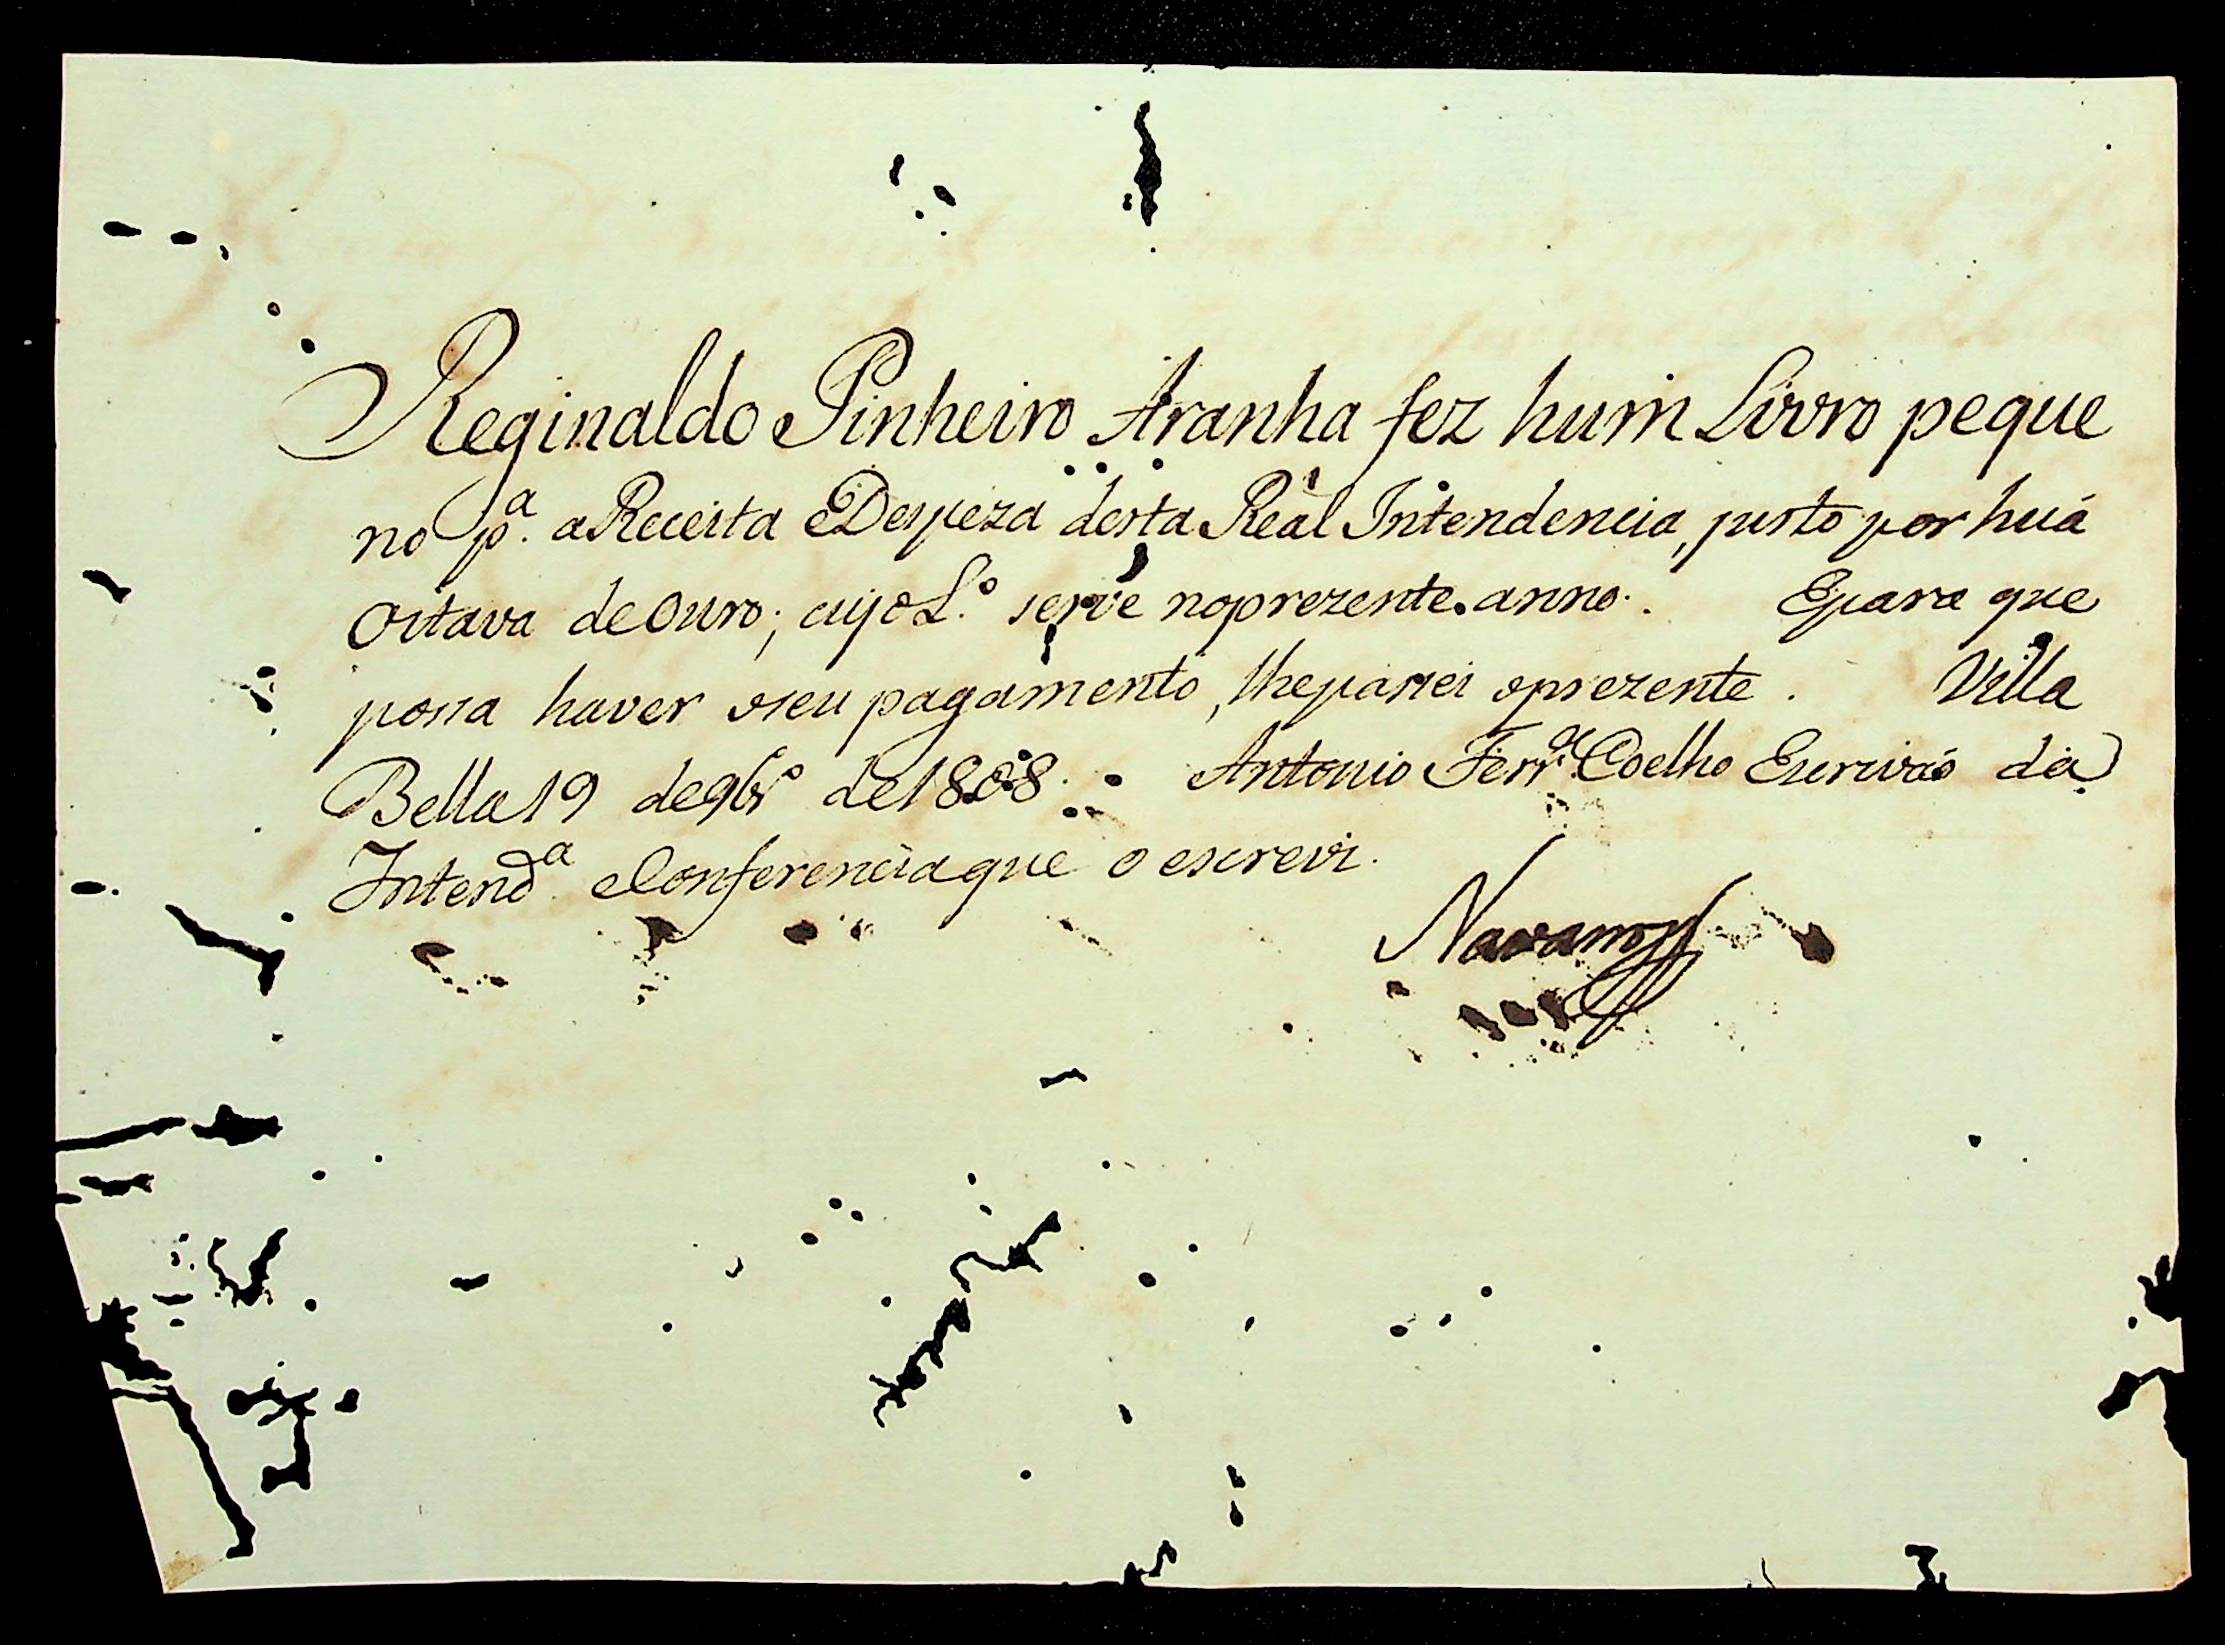 Reginaldo Pinheiro Aranha fez hum Livro peque
no p.ª a Receita e Despeza desta Real Intendencia, justo por huá
oitava de Ouro; cujo L.º serve no prezente anno. E para que
possa haver o seu pagamento, lhe passei o prezente. Villa
Bella 19 de 9br.º de 1808. Antonio Ferr.ª Coelho Escrivaõ da
Intend.ª e Conferencia que o escrevi.
Navarros